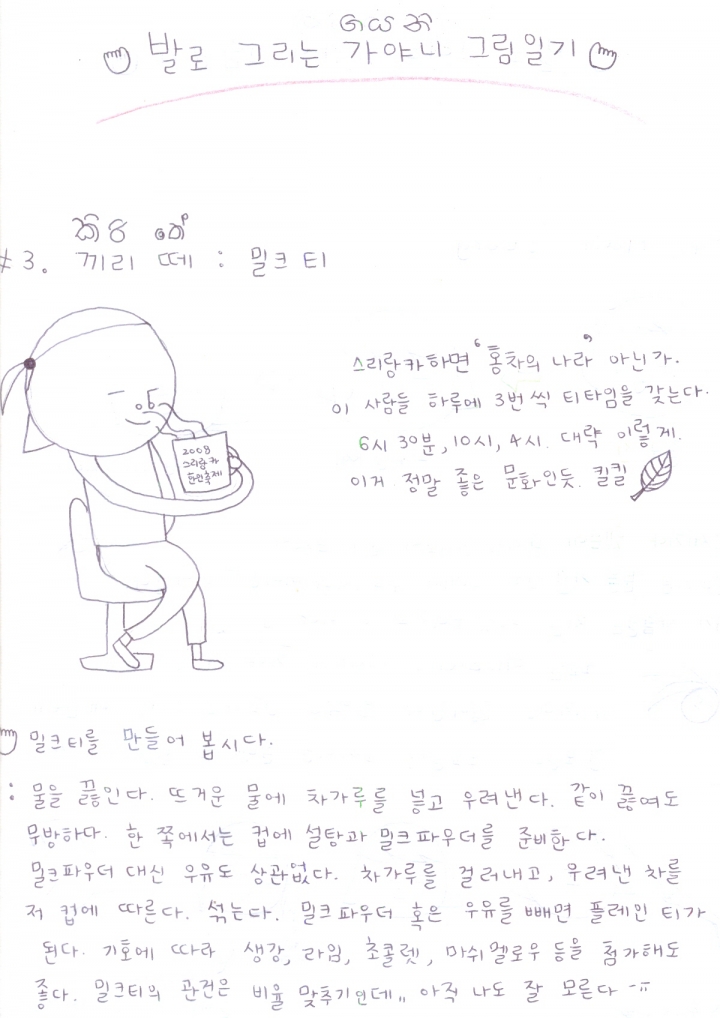 ගයනි
발로 그리는 가야니 그림일기
කිරි තේ
#3. 끼리 떼 : 밀크티
스리랑카하면 '홍차의 나라' 아닌가.
이 사람들 하루에 3번씩 티타임을 갖는다.
6시 30분, 10시, 4시. 대략 이렇게.
이거 정말 좋은 문화인듯. 킬킬
2008
스리랑카
한인축제
밀크티를 만들어 봅시다.
: 물을 끓인다. 뜨거운 물에 차가루를 넣고 우려낸다. 같이 끓여도
무방하다. 한 쪽에서는 컵에 설탕과 밀크파우더를 준비한다.
밀크파우더 대신 우유도 상관없다. 차가루를 걸러내고, 우려낸 차를
저 컵에 따른다. 섞는다. 밀크파우더 혹은 우유를 빼면 플레인 티가
된다. 기호에 따라 생강, 라임, 초콜렛, 마쉬멜로우 등을 첨가해도
좋다. 밀크티의 관건은 비율 맞추기인데,, 아직 나도 잘 모른다 -ㅠ